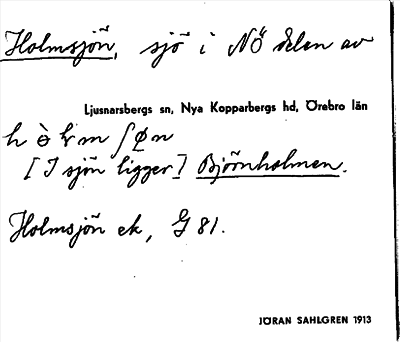 Holmsjön, sjö i NÖ delen av
Ljusnarsbergs sn, Nya Kopparbergs hd, Örebro län
[I sjön ligger] Björnholmen.
Holmsjön ek, G 81.
JÖRAN SAHLGREN 1913